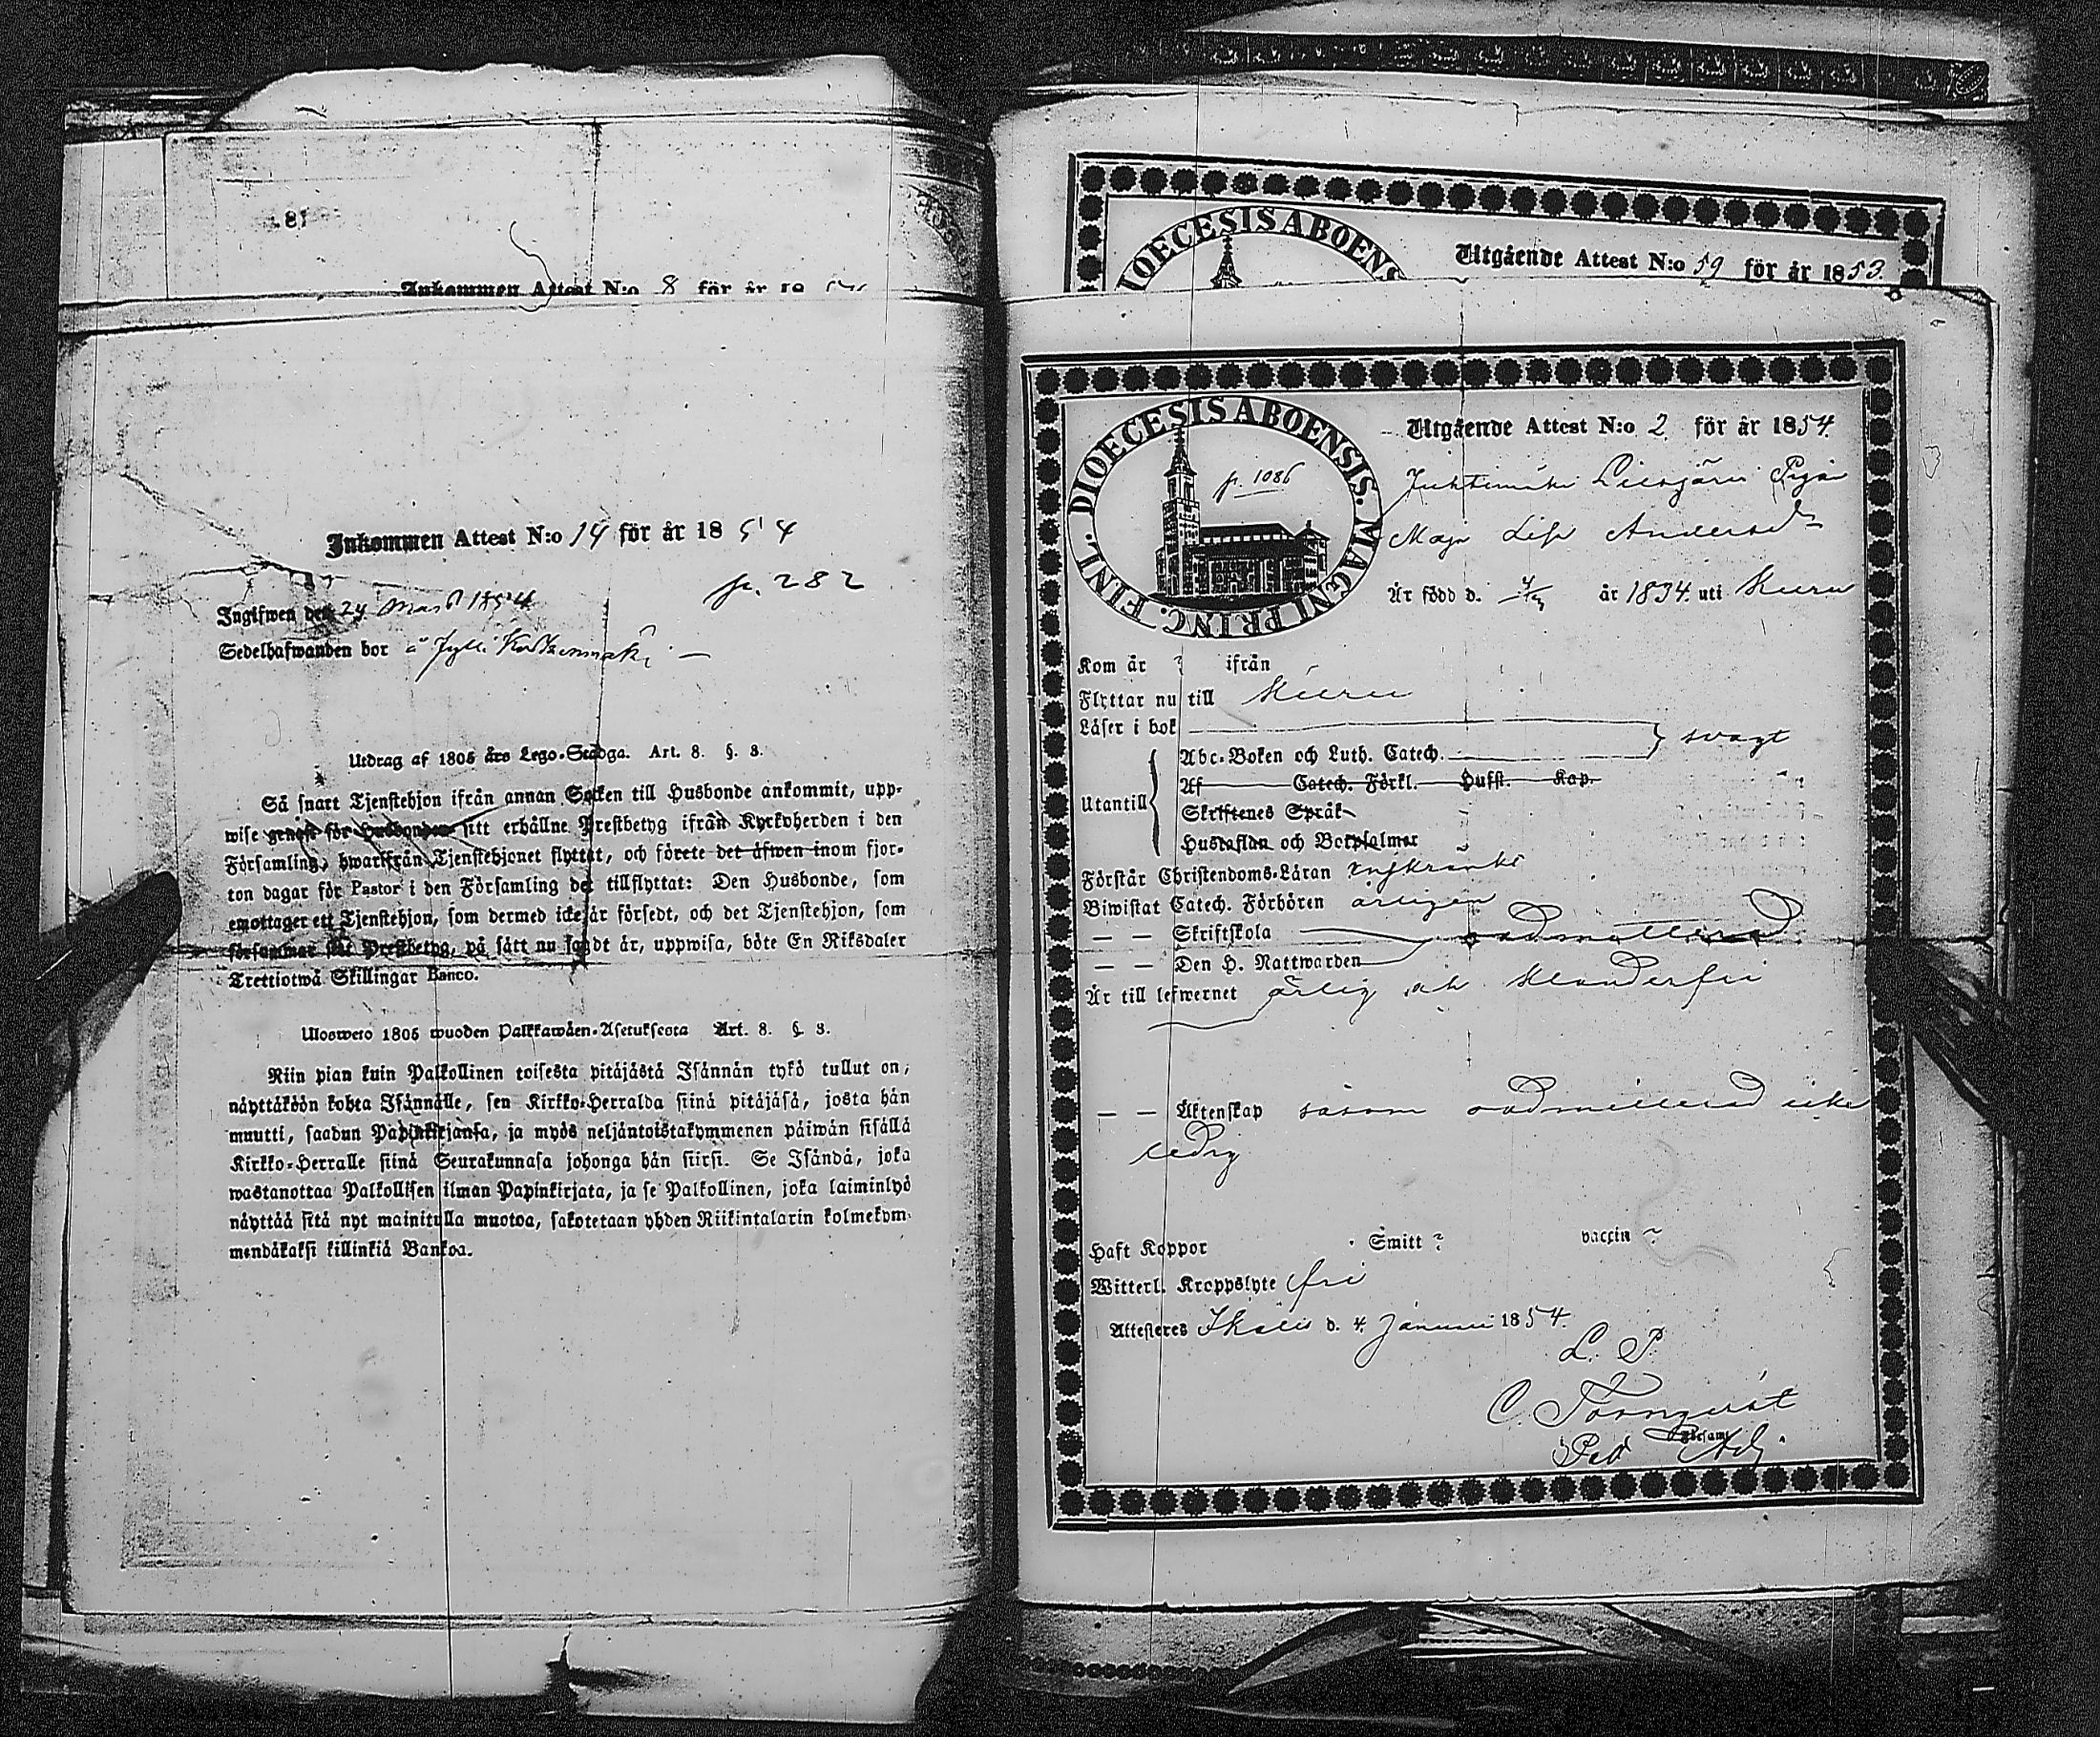 81
Inkommen Attest N:o 8 för år 18
Inkommen Attest N:o 14 för år 1854
p. 282
Ingifwen den 24 Mars 1854
Sedelhafwanden bor å Jylli
Utdrag af 1805 års Lego-Stadga. Art. 8. §. 8.
Så snart Tjenstehjon ifrån annan Socken till Husbonde ankommit, upp-
wise genast för Husbonden sitt erhållne Prestbetyg ifrån Kyrkoherden i den
Församling, hwarifrån Tjenstehjonet flyttat, och förete det äfwen inom fjor-
ton dagar för Pastor i den Församling det tillflyttat: Den Husbonde, som
emottager ett Tjenstehjon, som dermed icke är försedt, och det Tjenstehjon, som
försummar sitt Prestbetyg, på sätt nu sagdt är, uppwisa, böte En Riksdaler
Trettiotwå Skillingar Banco.
Ulosweto 1805 wuoden Palkkawäen-Asetuksesta Art. 8. § 8.
Niin pian kuin Palkollinen toisesta pitäjästä Isännän tykö tullut on,
näyttäköön kohta Isännälle, sen Kirkko-Herralda siinä pitäjäsä, josta hän
muutti, saadun Papinkirjansa, ja myös neljäntoistakymmenen päiwän sisällä
Kirkko-Herralle siinä Seurakunnasa johonga hän siirsi. Se Isändä, joka
wastanottaa Palkollisen ilman Papinkirjata, ja se Palkollinen, joka laiminlyö
näyttää sitä nyt mainitulla muotoa, sakotetaan yhden Riikintalarin kolmekym-
mendäkaksi killinkiä Bankoa.
DIOECESIS ABOENS
Utgående Attest N:o 59 för år 1853.
DIOECESIS ABOENSIS. MAGNI PRINC. FINL.
p. 1086
Utgående Attest N:o 2 för år 1854.
Juhtimäki Piga
Maja Lisa Andersd
Är född d. år 1834. uti Kuru
Kom år ? ifrån
Flyttar nu till Kuru
Läser i bok
Abc-Boken och Luth. Catech. } svagt
Af Catech. Förkl. Hufst. Kap.
Utantill { Skriftenes Språk
Hustaflan och Botpsalmer
Förstår Christendoms-Läran
Biwistat Catech. Förhören årligen
— — Skriftskola admitterad
— — Den H. Nattwarden
Är till lefwernet ärlig och klanderfri
— — Äktenskap såsom oadmitterad icke
ledig
Haft Koppor Smitt ? vaccin ?
Witterl. Kroppslyte fri
Attesteras Ikalis d. 4. Januari 1854.
L. P.
C. Törnqvist
Församl.
Ped Adj.